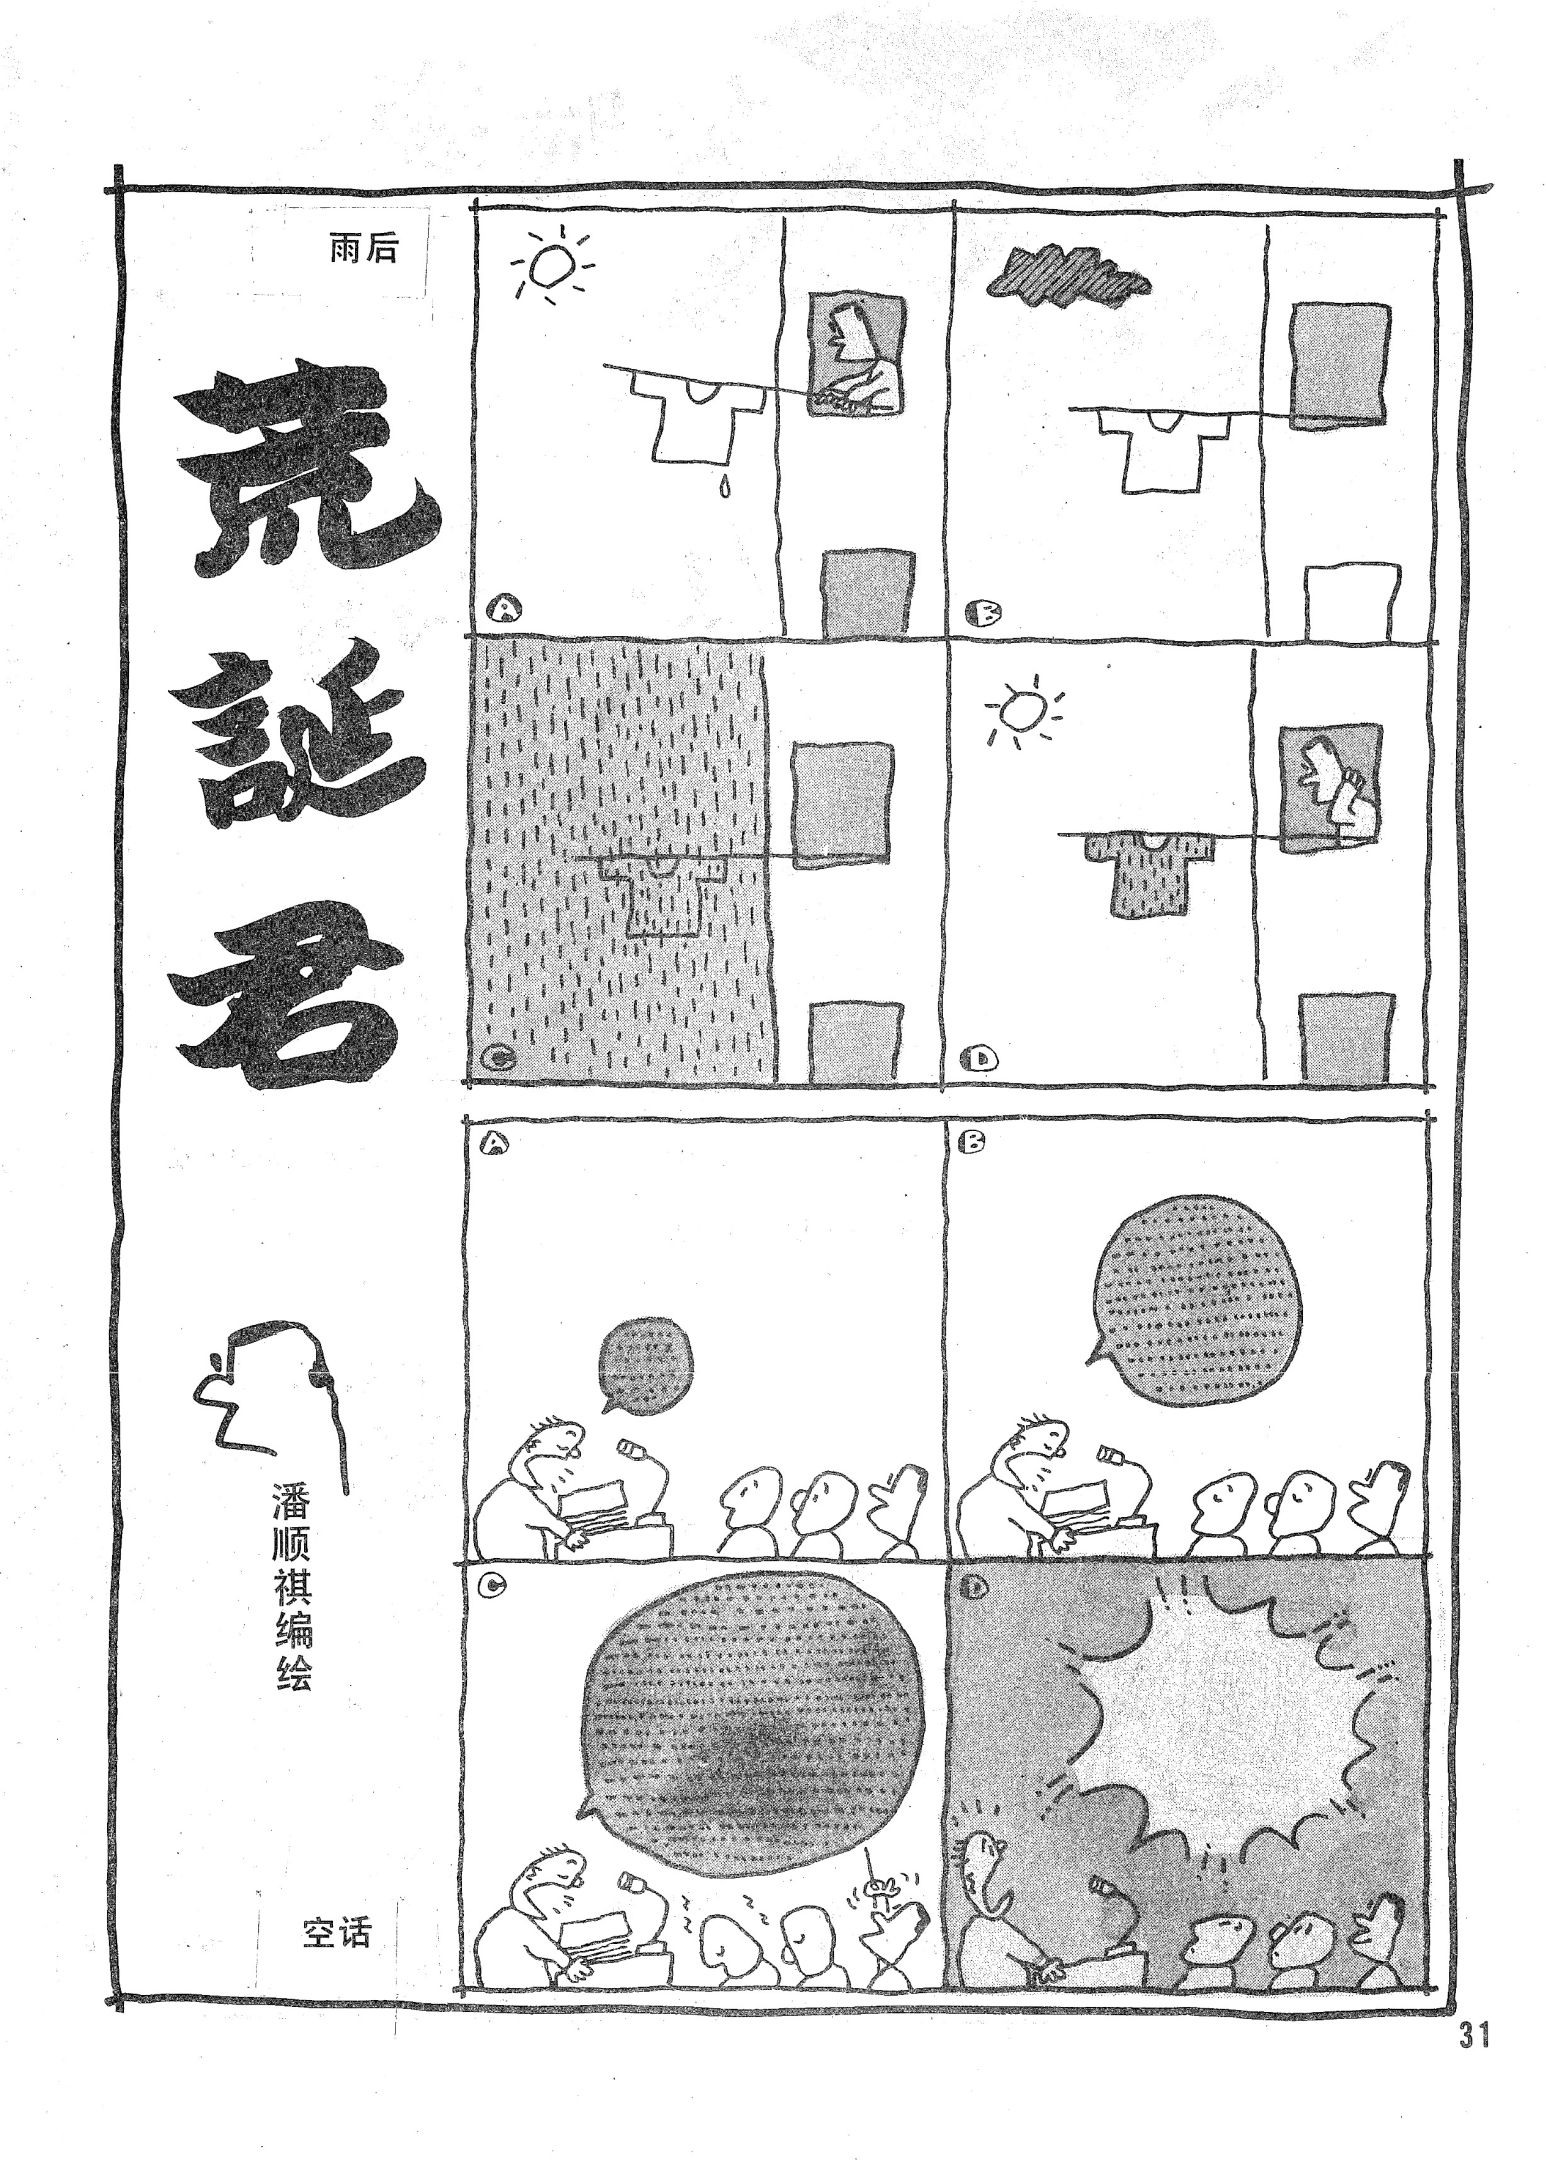 雨后
荒誕君
潘顺祺编绘
空话
A
B
C
D
A
B
C
D
31